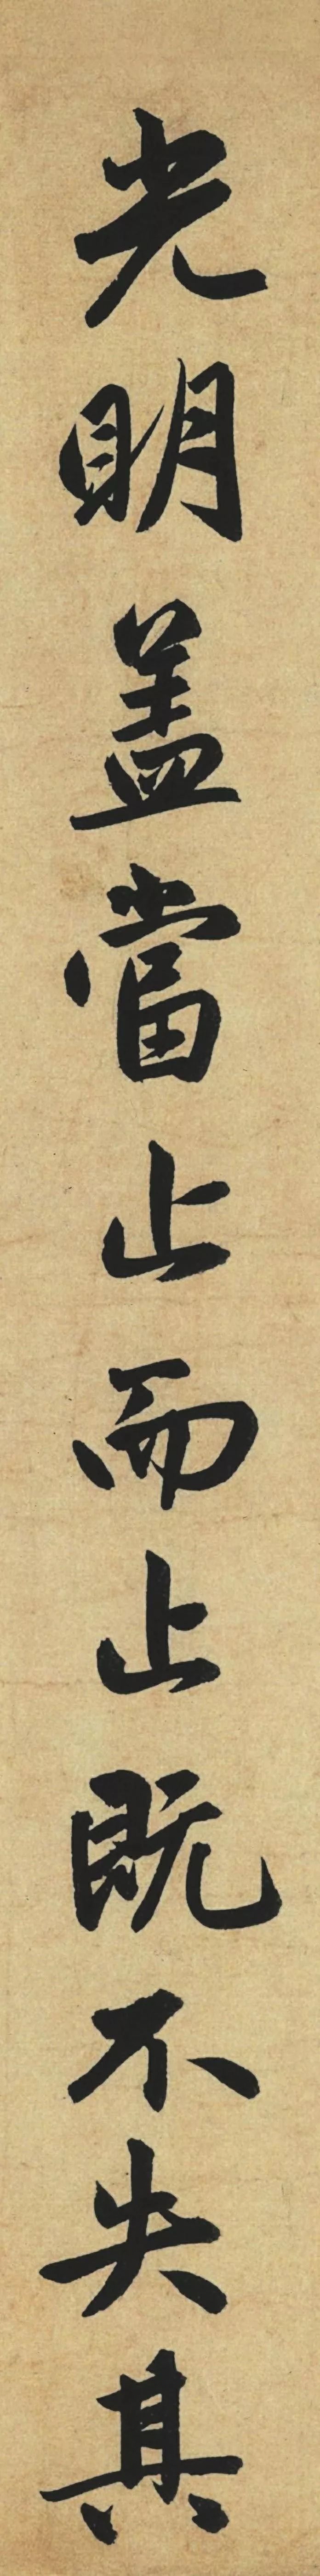 光明盖當止而止既不失其